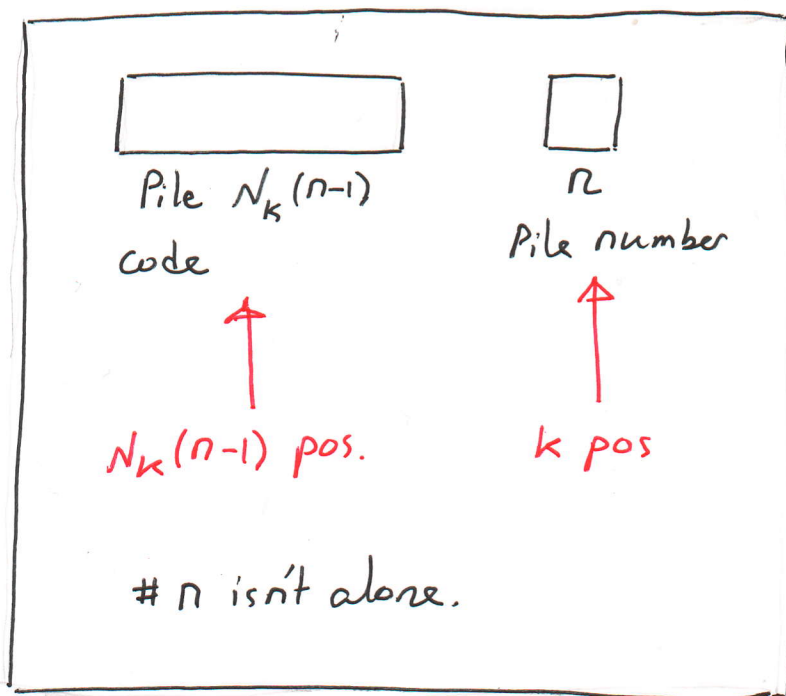 Pile N_k(n-1) n
code Pile number
N_k(n-1) pos. k pos
# n isn't alone.